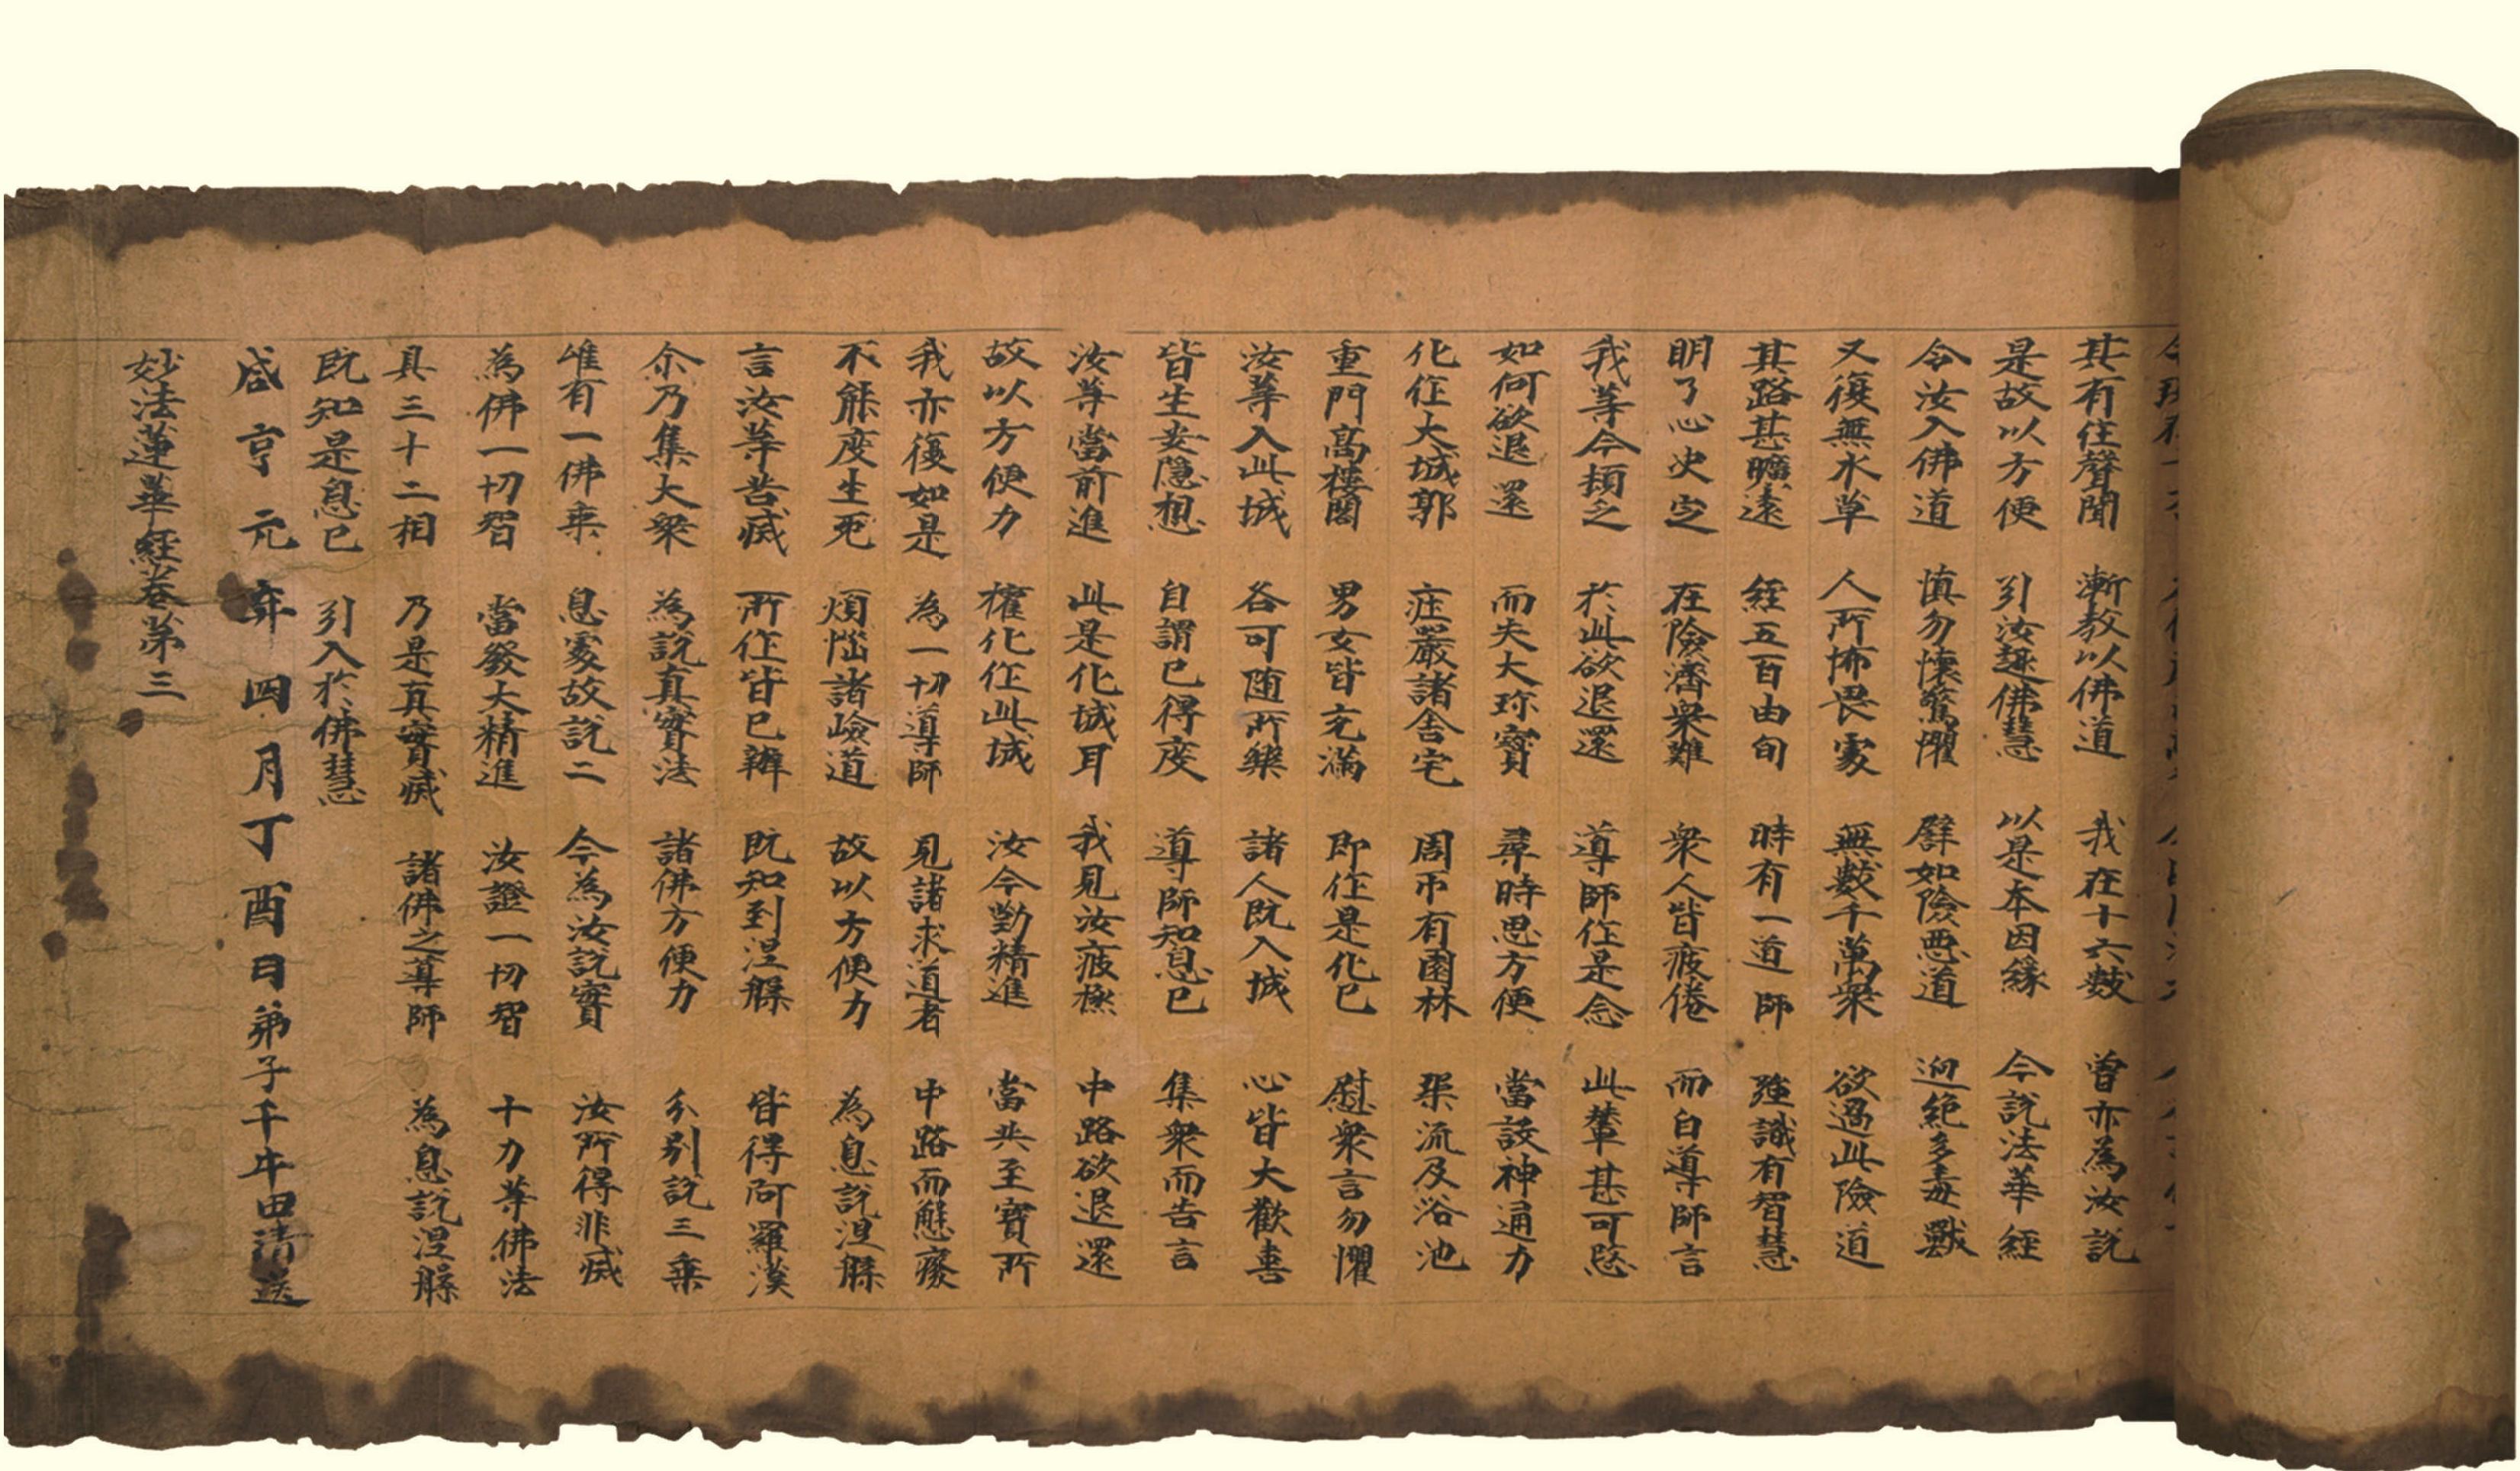 其有住聲聞 漸教以佛道 我在十六數 曾亦為汝說
是故以方便 引汝趣佛慧 以是本因緣 今說法華經
令汝入佛道 慎勿懷驚懼 譬如險惡道 迥絕多毒獸
又復無水草 人所怖畏處 無數千萬衆 欲過此險道
其路甚曠遠 經五百由旬 時有一道師 強識有智慧
明了心決定 在險濟衆難 衆人皆疲倦 而白導師言
我等今頓乏 於此欲退還 導師作是念 此輩甚可愍
如何欲退還 而失大珎寶 尋時思方便 當設神通力
化作大城郭 庄嚴諸舍宅 周帀有園林 渠流及浴池
重門高樓閣 男女皆充滿 即作是化已 慰衆言勿懼
汝等入此城 各可随所樂 諸人既入城 心皆大歡喜
皆生安隱想 自謂已得度 導師知息已 集衆而告言
汝等當前進 此是化城耳 我見汝疲極 中路欲退還
故以方便力 權化作此城 汝今勤精進 當共至寶所
我亦復如是 為一切導師 見諸求道者 中路而懈廢
不能度生死 煩惱諸嶮道 故以方便力 為息說涅槃
言汝等苦滅 所作皆已辦 既知到涅槃 皆得阿羅漢
尒乃集大衆 為說真實法 諸佛方便力 分別說三乗
唯有一佛乗 息處故說二 今為汝說實 汝所得非滅
為佛一切智 當發大精進 汝證一切智 十力等佛法
具三十二相 乃是真實滅 諸佛之導師 為息說涅槃
既知是息已 引入於佛慧
咸亨元年四月丁酉日弟子千牛田清送
妙法蓮華經卷第三